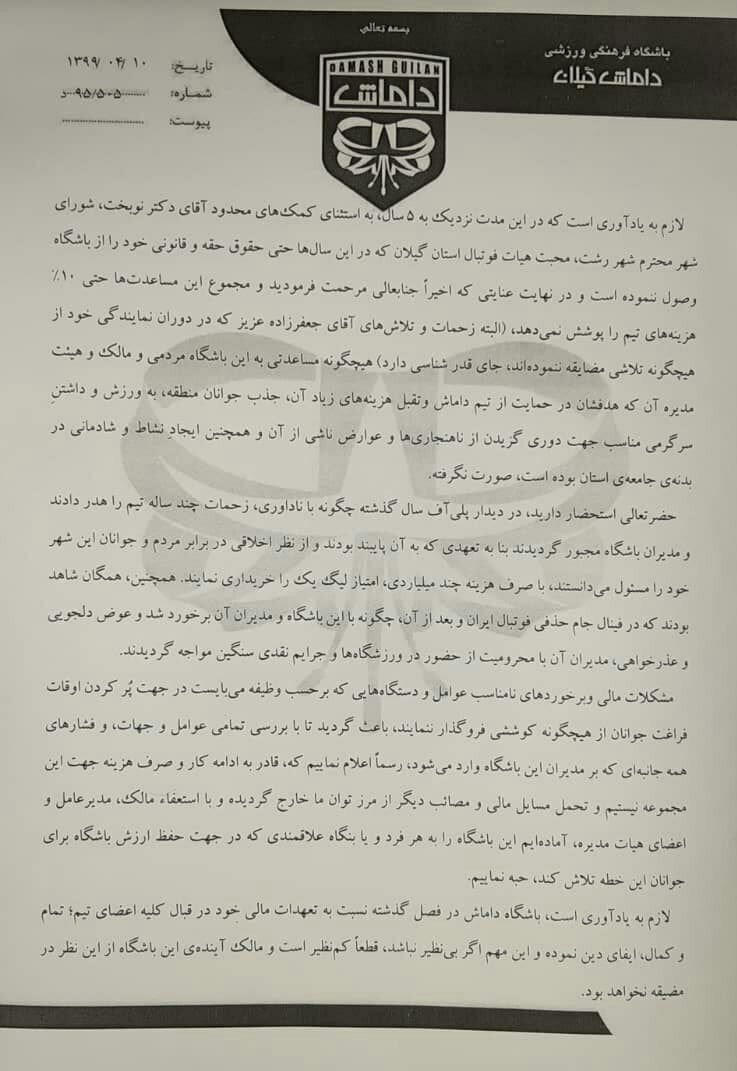 بسمه تعالی
باشگاه فرهنگی ورزشی
داماش گیلان
DAMASH GUILAN
داماش
تاریخ: ۱۳۹۹/۰۴/۱۰
شماره: ۹۵/۵۰۵-د
پیوست:
لازم به یادآوری است که در این مدت نزدیک به ۵ سال، به استثنای کمک‌های محدود آقای دکتر نوبخت، شورای
شهر محترم شهر رشت، محبت هیات فوتبال استان گیلان که در این سال‌ها حتی حقوق حقه و قانونی خود را از باشگاه
وصول ننموده است و در نهایت عنایتی که اخیراً جنابعالی مرحمت فرمودید و مجموع این مساعدت‌ها حتی ۱۰٪
هزینه‌های تیم را پوشش نمی‌دهد، (البته زحمات و تلاش‌های آقای جعفرزاده عزیز که در دوران نمایندگی خود از
هیچگونه تلاشی مضایقه ننموده‌اند، جای قدر شناسی دارد) هیچگونه مساعدتی به این باشگاه مردمی و مالک و هیئت
مدیره آن که هدفشان در حمایت از تیم داماش وتقبل هزینه‌های زیاد آن، جذب جوانان منطقه، به ورزش و داشتنِ
سرگرمی مناسب جهت دوری گزیدن از ناهنجاری‌ها و عوارض ناشی از آن و همچنین ایجادِ نشاط و شادمانی در
بدنه‌ی جامعه‌ی استان بوده است، صورت نگرفته.
حضرتعالی استحضار دارید، در دیدار پلی‌آف سال گذشته چگونه با ناداوری، زحمات چند ساله تیم را هدر دادند
و مدیران باشگاه مجبور گردیدند بنا به تعهدی که به آن پایبند بودند و از نظر اخلاقی در برابر مردم و جوانان این شهر
خود را مسئول می‌دانستند، با صرف هزینه چند میلیاردی، امتیاز لیگ یک را خریداری نمایند. همچنین، همگان شاهد
بودند که در فینال جام حذفی فوتبال ایران و بعد از آن، چگونه با این باشگاه و مدیران آن برخورد شد و عوض دلجویی
و عذرخواهی، مدیران آن با محرومیت از حضور در ورزشگاه‌ها و جرایم نقدی سنگین مواجه گردیدند.
مشکلات مالی وبرخوردهای نامناسب عوامل و دستگاه‌هایی که برحسب وظیفه می‌بایست در جهت پُر کردن اوقات
فراغت جوانان از هیچگونه کوششی فروگذار ننمایند، باعث گردید تا با بررسی تمامی عوامل و جهات، و فشارهای
همه جانبه‌ای که بر مدیران این باشگاه وارد می‌شود، رسماً اعلام نماییم که، قادر به ادامه کار و صرف هزینه جهت این
مجموعه نیستیم و تحمل مسایل مالی و مصائب دیگر از مرز توان ما خارج گردیده و با استعفاء مالک، مدیرعامل و
اعضای هیات مدیره، آماده‌ایم این باشگاه را به هر فرد و یا بنگاه علاقمندی که در جهت حفظ ارزش باشگاه برای
جوانان این خطه تلاش کند، حبه نماییم.
لازم به یادآوری است، باشگاه داماش در فصل گذشته نسبت به تعهدات مالی خود در قبال کلیه اعضای تیم؛ تمام
و کمال، ایفای دین نموده و این مهم اگر بی‌نظیر نباشد، قطعاً کم‌نظیر است و مالک آینده‌ی این باشگاه از این نظر در
مضیقه نخواهد بود.